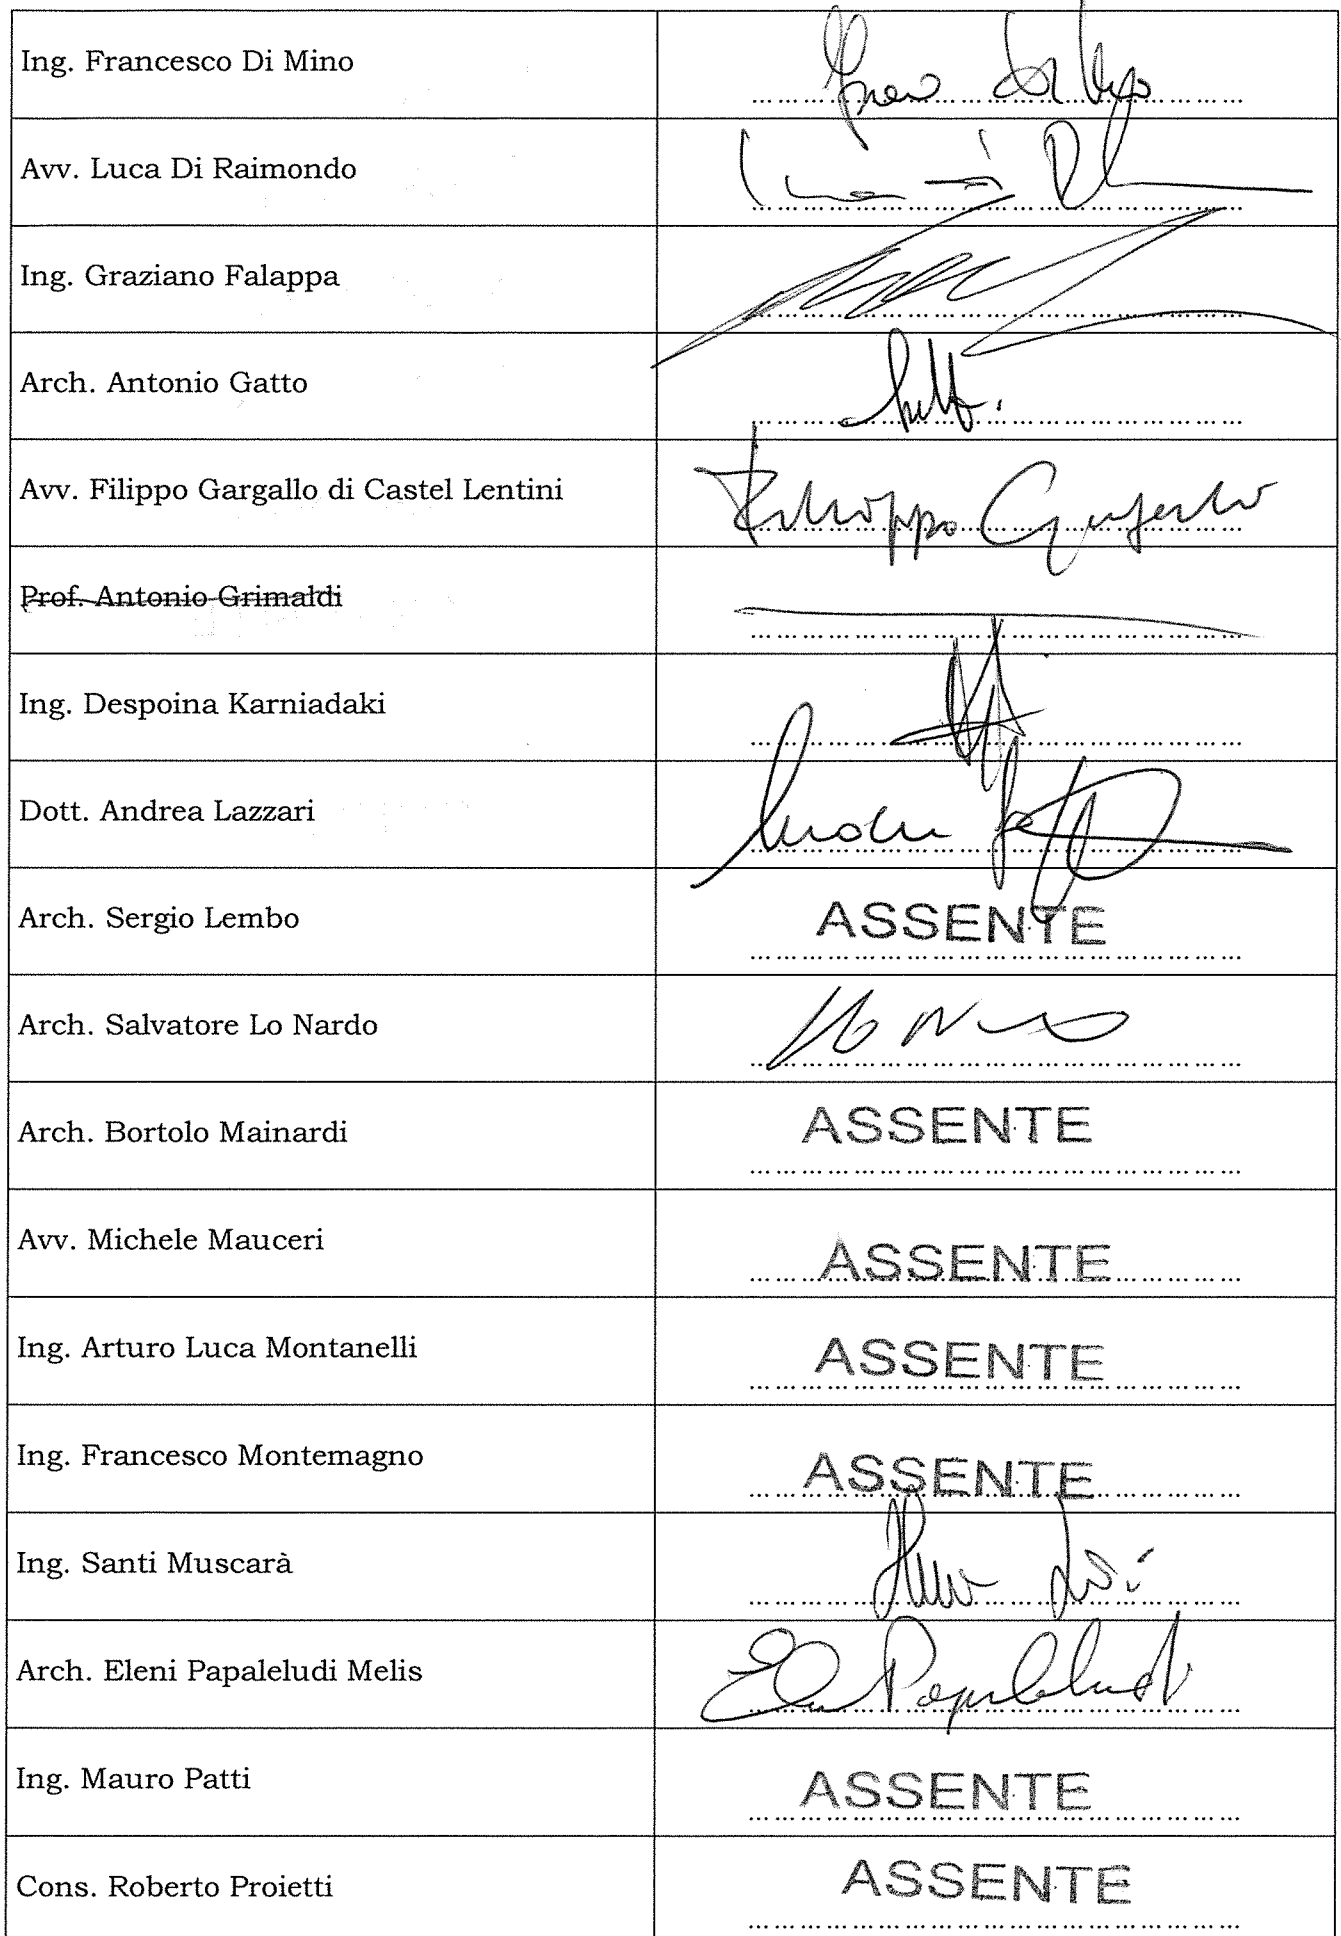 Ing. Francesco Di Mino
Avv. Luca Di Raimondo
Ing. Graziano Falappa
Arch. Antonio Gatto
Avv. Filippo Gargallo di Castel Lentini
Filippo Gargallo
Prof. Antonio Grimaldi
Ing. Despoina Karniadaki
Dott. Andrea Lazzari
Arch. Sergio Lembo
ASSENTE
Arch. Salvatore Lo Nardo
Arch. Bortolo Mainardi
ASSENTE
Avv. Michele Mauceri
ASSENTE
Ing. Arturo Luca Montanelli
ASSENTE
Ing. Francesco Montemagno
ASSENTE
Ing. Santi Muscarà
Arch. Eleni Papaleludi Melis
Ing. Mauro Patti
ASSENTE
Cons. Roberto Proietti
ASSENTE